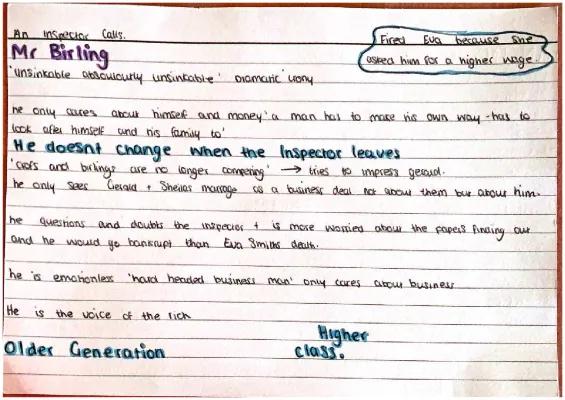 An Inspector Calls.
Mr Birling
Fired Eva because she
asked him for a higher wage.
'unsinkable absoulourly unsinkable' Dramatic irony
he only cares about himself and money 'a man has to make his own way - has to
look after himself and his family to'
He doesnt change when the Inspector leaves
'crofs and birlings are no longer competing' → tries to impress gerald.
he only sees Gerald + Sheilas marrage as a business deal not about them but about him.
he questions and doubts the inspector + is more worried about the papers finding out
and he would go bankrupt than Eva Smiths death.
he is emotionless 'hard headed business man' only cares about business
He is the voice of the rich
Older Generation
Higher
class.